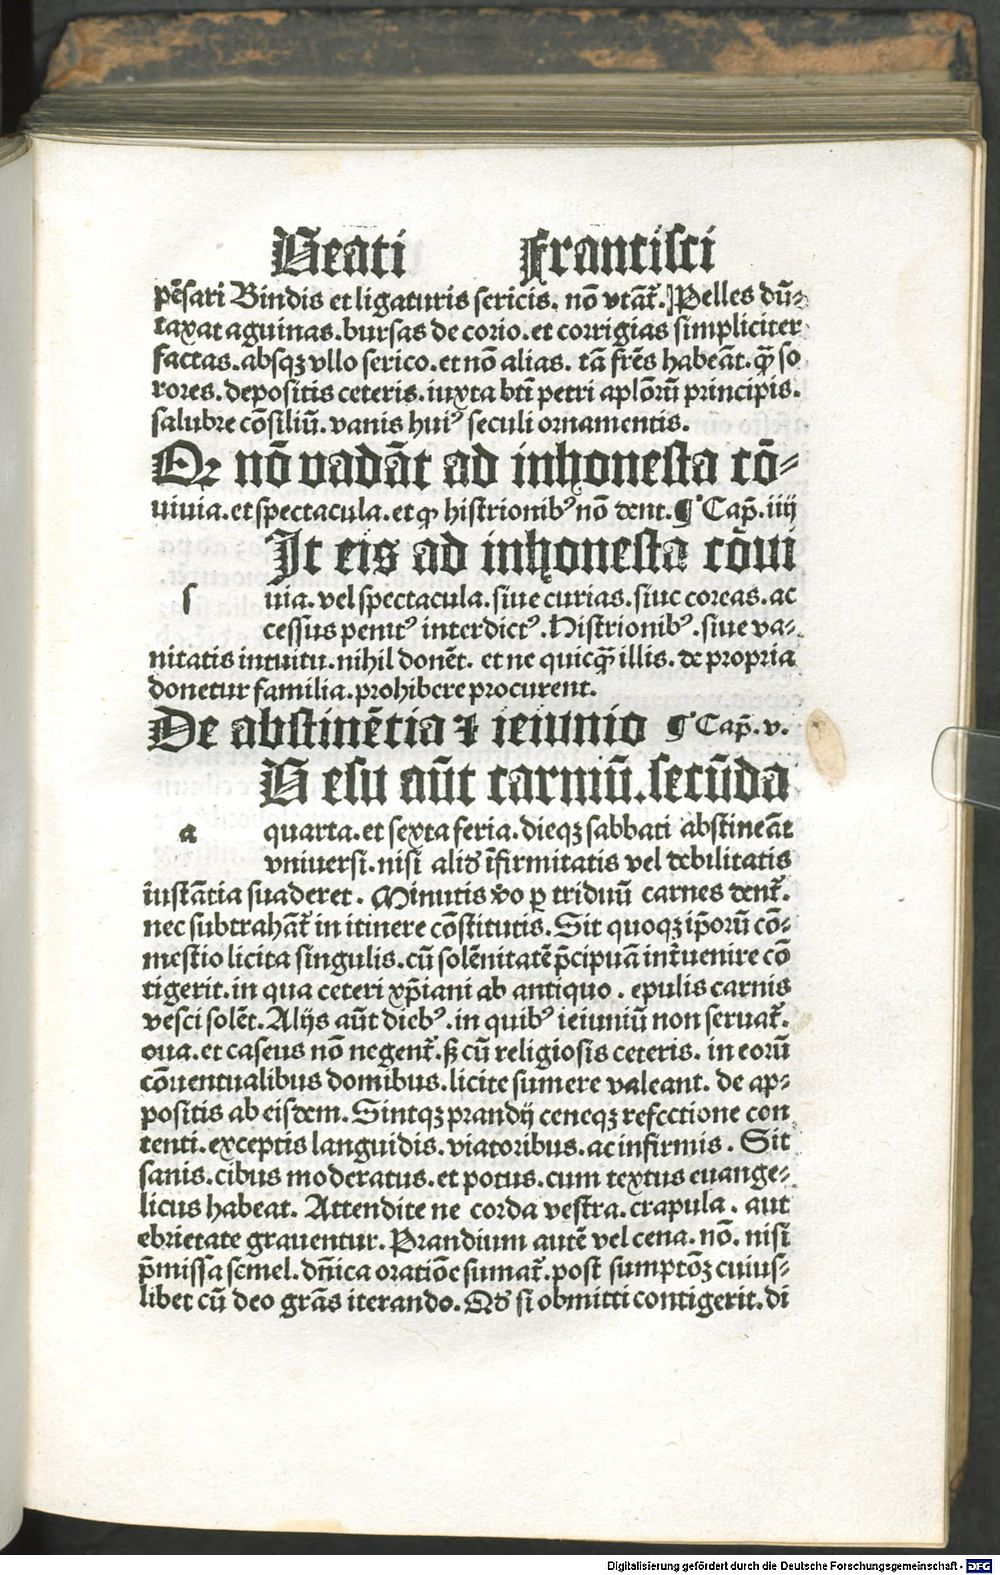 Beati Francisci
pēsari Bindis et ligaturis sericis. nō vtāt̄. Pelles dū-
taxat aguinas. bursas de corio. et corrigias simpliciter
factas. absqꝫ vllo serico. et nō alias. tā fr̄es habeāt. qꝫ̄ so
rores. depositis ceteris. iuxta bt̄i petri aplōrū principis.
salubre cōsiliū. vanis huiꝰ seculi ornamentis.
Qꝛ nō vadāt ad inhonesta cō-
uiuia. et spectacula. et ꝙ histrionibꝰ nō dent. ¶ Cap̄. iiij
It eis ad inhonesta cōui
s uia. vel spectacula. siue curias. siue coreas. ac
cessus penitꝰ interdictꝰ. Histrionibꝰ. siue va-
nitatis intuitu. nihil donēt. et ne quicqꝫ̄ illis. de propria
donetur familia. prohibere procurent.
De abstinētia ⁊ ieiunio ¶ Cap̄. v.
B esu aūt carniū. secūda
a quarta. et sexta feria. dieqꝫ sabbati abstineāt
vniuersi. nisi aliđ īfirmitatis vel debilitatis
īustātia suaderet. Minutis v̄o ꝑ triduū carnes dent̄.
nec subtrahāt̄ in itinere cōstitutis. Sit quoqꝫ ip̄orū cō-
mestio licita singulis. cū solēnitatē p̄cipuā int̄uenire cō
tigerit. in qua ceteri xp̄iani ab antiquo. epulis carnis
vesci solēt. Alijs aūt diebꝰ. in quibꝰ ieiuniū non seruat̄.
oua. et caseus nō negent̄. sꝫ cū religiosis ceteris. in eorū
cōuentualibus domibus. licite sumere valeant. de ap-
positis ab eisdem. Sintqꝫ prandij ceneqꝫ refectione con
tenti. exceptis languidis. viatoribus. ac infirmis. Sit
sanis. cibus moderatus. et potus. cum textus euange-
licus habeat. Attendite ne corda vestra. crapula. aut
ebrietate grauentur. Prandium autē vel cena. nō. nisi
p̄missa semel. dn̄ica oratiōe sumat̄. post sumptōꝫ cuius-
libet cū deo grās iterando. Qđ si obmitti contigerit. di
Digitalisierung gefördert durch die Deutsche Forschungsgemeinschaft - DFG